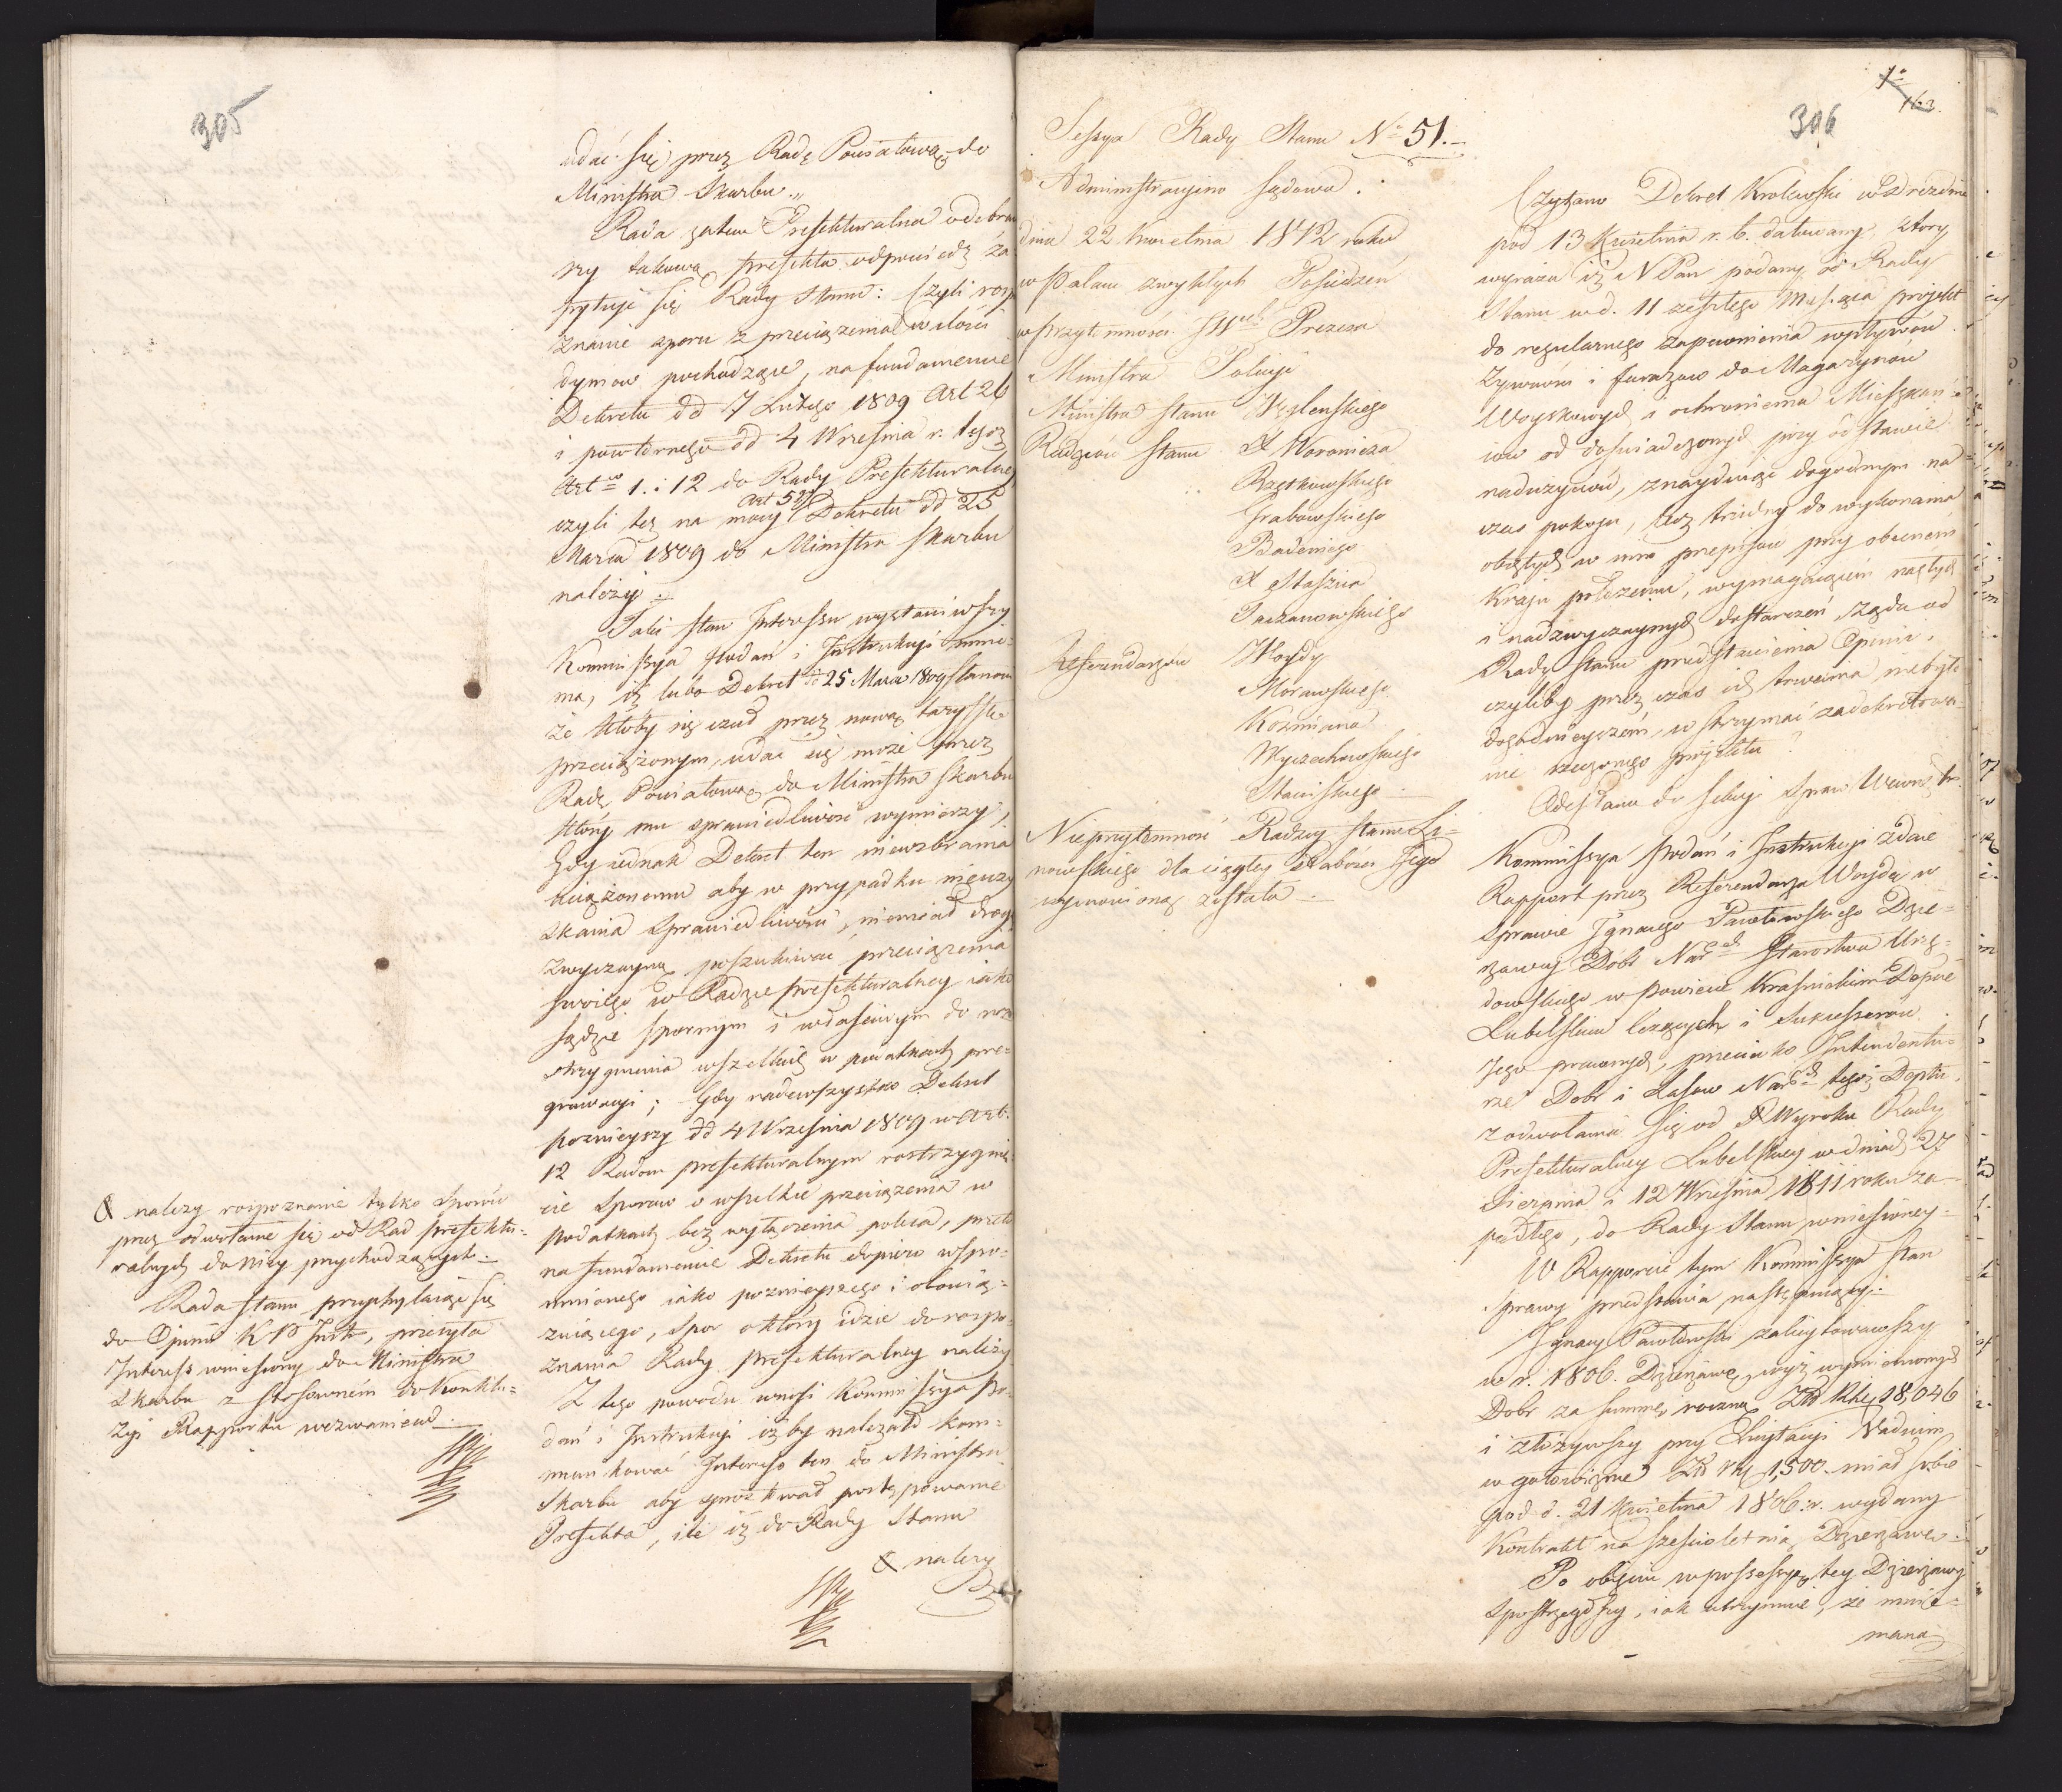 305
udać się przez Radę Powiatową do
Ministra Skarbu „
Rada zatem Prefekturalna odebraw
szy takową Prefekta odpowiedź za
pytuje się Rady Stanu: Czyli rozp
znanie sporu z przeciążenia w ilości
dymow pochodzące, na fundamencie
Dekretu dd 7 Lutego 1809 Art 26
i powtórnego dd 4 Września r. tegoż
Art 1. i 12 do Rady Prefekturalney
czyli też na mocy Art 52 Dekretu dd 25
Marca 1809 do Ministra Skarbu
należy.
Taki stan Interessu wystawiwszy
Kommissya Podań i Instrukcyi mnie=
ma, iż lubo Dekret dd 25 Marca 1809 stanowi
że ktoby się czuł przez nową taryffę
przeciążonym, udać się może przez
Radę Powiatową do Ministra Skarbu
który mu sprawiedliwość wymierzy,
Gdy jednak Dekret ten niewzbrania
uciążonemu aby w przypadku nieuzy
skania sprawiedliwości, niemiał drogą
zwyczayną poszukiwać przeciążenia
swoiego w Radzie Prefekturalney iako
sądzie spornym i właściwym do roz
strzygnienia wszelkich w podatkach pre=
grawacyi; Gdy nadewszystko Dekret
pozniejszy dd 4 Września 1809 w Art:
12 Radom prefekturalnym rostrzygnię=
cie Sporow o wszelkie przeciążenia w
podatkach bez wyłączenia poleca, przeto
na fundamencie Dekretu dopiero wspo=
mnionego iako poznieyszego i obowią=
zuiącego, spor o który idzie do rozpo=
znania Rady prefekturalney należy
Z tego powodu wnosi Kommissya Po=
dań i Instrukcyi iżby należało kom=
munikować Interess ten do Ministra
Skarbu aby sprostował postępowanie
Prefekta, ile iż do Rady Stanu
& należy
& należy rozpoznanie tylko sporów
przez odwołanie się od Rad prefektu=
ralnych do niey przychodzących.
Rada Stanu przychylaiąc się
do Opinii K P Instr, przesyła
Interess wniesiony do Ministra
Skarbu z stosowném do Konklu=
zyi Rapportu wezwaniem.
1
163.
306
Sessya Rady Stanu No 51.
Administracyino Sądowa.
dnia 22 Kwietnia 1812 roku
w Pałacu zwykłych Posiedzeń
w Przytomności JW Prezesa
Ministra Policyi
Ministra Stanu Węglenskiego
Radzców Stanu X Woronicza
Rzętkowskiego
Grabowskiego
Badeniego
X Staszica
Taczanowskiego
Referendarzów Woydy
Morawskiego
Koźmiana
Wyczechowskiego
Staniskiego
Nieprzytomność Radzcy Stanu Li=
nowskiego dla ciągłey słabości Jego
wymowioną została.
Czytano Dekret Krolewski w Dreznie
pod 13 Kwietnia r. b. datowany, który
wyraża iż N Pan podany od Rady
Stanu w d. 11 zeszłego Miesiąca projekt
do regularnego zapewnienia wpływów
żywności i furażow do Magazynów
Woyskowych i ochronienia Mieszkań=
cow od doświadczonych przy odstawie
nadużyciów, znayduiąc dogodnym na
czas pokoju, lecz trudny do wykonania
objętych w nim przepisow przy obecnem
Kraju położeniu, wymagaiącém nagłych
i nadzwyczaynych dostarczeń żąda od
Rady Stanu przedstawienia Opinii,
czyliby przez czas ich trwania niebyło
dogodnieyszém, wstrzymać zadekretowa=
nie rzeczonego projektu?
Odesłano do Sekcyi Spraw Wewnętr.
Kommissya Podań i Instrukcyi zdaie
Rapport przez Referendarza Woydę w
Sprawie Ignacego Pawłowskiego Dzie=
rżawcy Dóbr Nar Starostwa Urzę=
dowskiego w Powiecie Kraśnickim Depcie
Lubelskim leżących i Sukcessorów
Jego prawnych, przeciwko Intendentu=
rze Dobr i Lasow Nar tegoż Deptu.
z odwołania się od Wyroku Rady
Prefekturalney Lubelskiey w dniach 27
Sierpnia i 12 Września 1811 roku za=
padłego, do Rady Stanu wniesioney.
W Rapporcie tym Kommissya stan
Sprawy przedstawia następuiący:
Ignacy Pawłowski zalicytowawszy
w r. 1806. Dzierżawę wyż wymienionych
Dobr za summę roczną Zł Rhe 18,046
i złożywszy przy Licytacyi Vadium
w gotowiznie Zł Rh 1,500. miał sobie
pod d. 21 Kwietnia 1806. r. wydany
Kontrakt na sześcioletnią Dzierżawę.
Po objęciu w possessyą tey Dzierżawy
spostrzegłszy, iak utrzymuie, że mnie=
mana